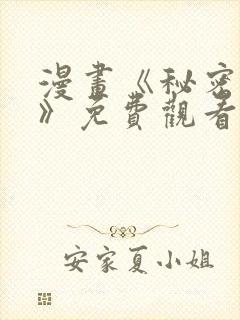 漫畫《秘密
》免費觀看
安家夏小姐